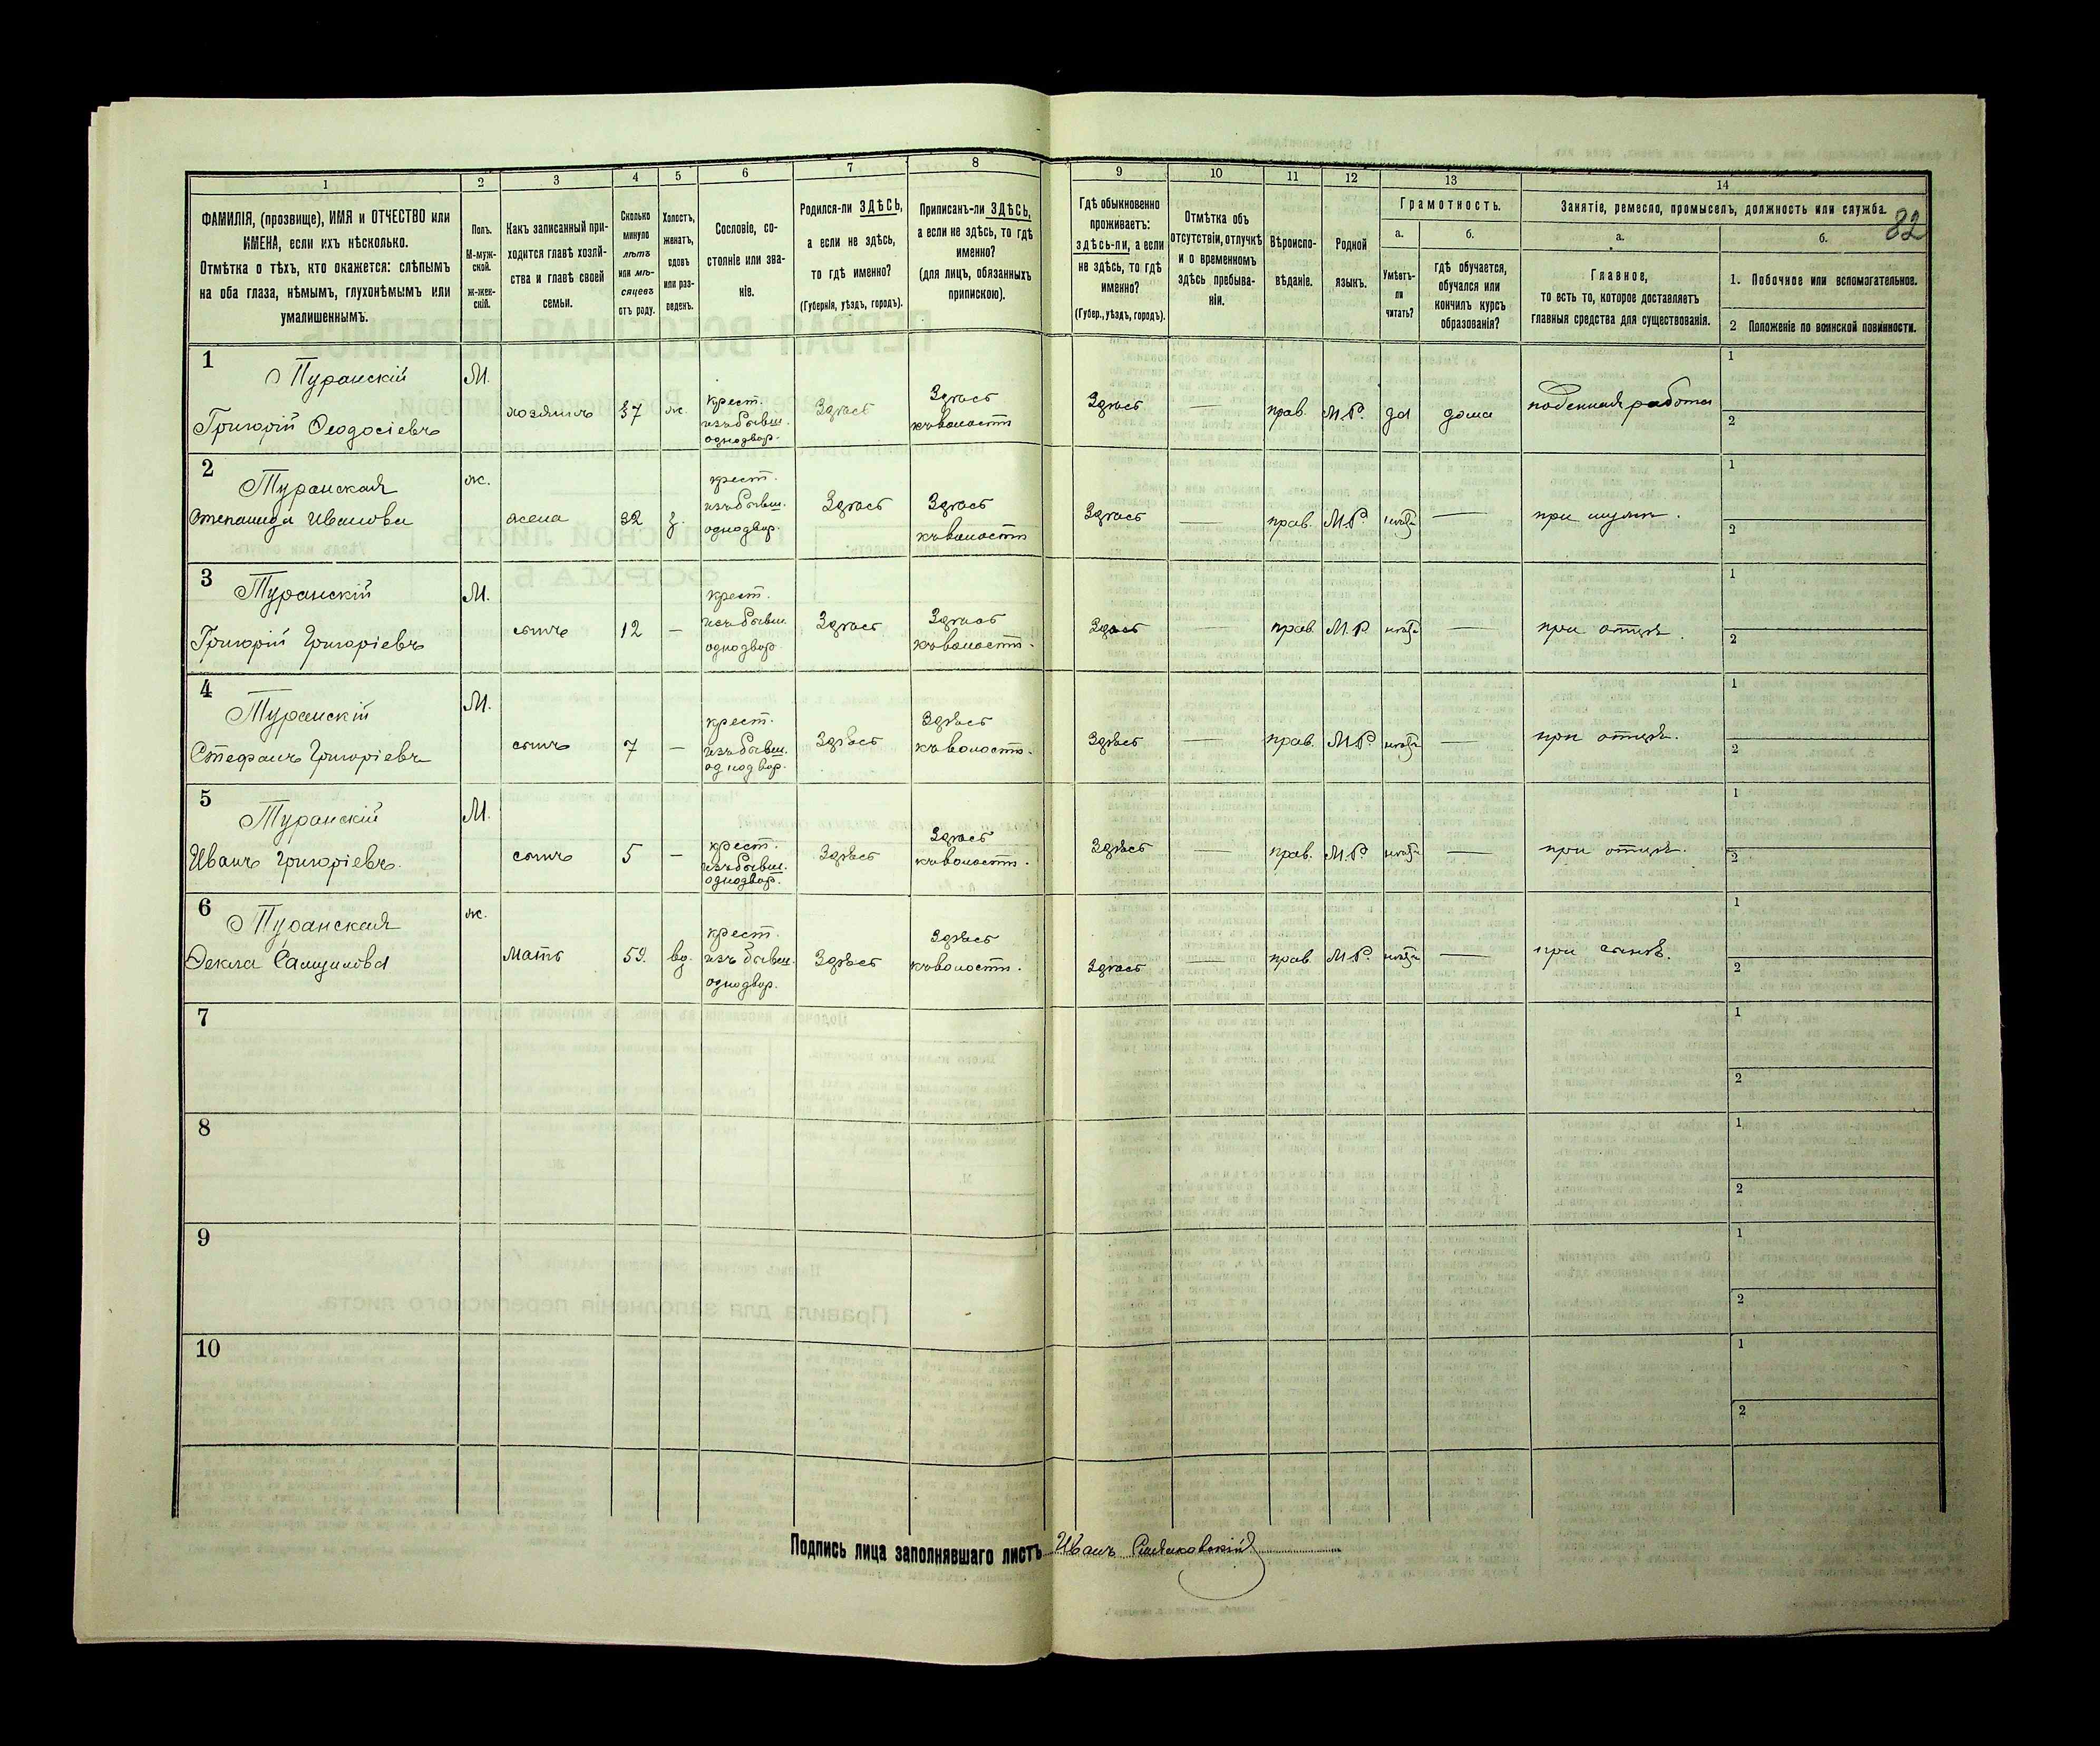 1 2 3 4 5 6 7 8 9 10 11 12 13 14
82
ФАМИЛІЯ, (прозвище), ИМЯ и ОТЧЕСТВО или
ИМЕНА, если ихъ нѣсколько.
Отмѣтка о тѣхъ, кто окажется: слѣпымъ
на оба глаза, нѣмымъ, глухонѣмымъ или
умалишеннымъ.
Полъ.
М-муж-
ской.
Ж-жен-
скій.
Какъ записанный при-
ходится главѣ хозяй-
ства и главѣ своей
семьи.
Сколько
минуло
лѣтъ
или мѣ-
сяцевъ
отъ роду.
Холостъ,
женатъ,
вдовъ
или раз-
веденъ.
Сословіе, со-
стояніе или зва-
ніе.
Родился-ли ЗДѢСЬ,
а если не здѣсь,
то гдѣ именно?
(Губернія, уѣздъ, городъ).
Приписанъ-ли ЗДѢСЬ,
а если не здѣсь, то гдѣ
именно?
(для лицъ, обязанныхъ
припискою).
Гдѣ обыкновенно
проживаетъ:
здѣсь-ли, а если
не здѣсь, то гдѣ
именно?
(Губер., уѣздъ, городъ).
Отмѣтка объ
отсутствіи, отлучкѣ
и о временномъ
здѣсь пребыва-
ніи.
Вѣроиспо-
вѣданіе.
Родной
языкъ.
Грамотность.
а.
Умѣетъ-
ли
читать?
б.
гдѣ обучается,
обучался или
кончилъ курсъ
образованія?
Занятіе, ремесло, промыселъ, должность или служба.
а.
Главное,
то есть то, которое доставляетъ
главныя средства для существованія.
б.
1. Побочное или вспомогательное.
2 Положеніе по воинской повинности.
1
Туранскій
Григорій Ѳеодосіевъ
М.
хозяинъ
37
ж.
крест.
изъ бывш.
однодвор.
Здѣсь
Здѣсь
къ волости
Здѣсь
—
прав.
М.Р.
да
дома
поденная работа
1
2
2
Туранская
Степанида Иванова
ж.
жена
32
з.
крест.
изъ бывш.
однодвор.
Здѣсь
Здѣсь
къ волости
Здѣсь
—
прав.
М.Р.
—
при мужѣ.
1
2
3
Туранскій
Григорій Григоріевъ
М.
сынъ
12
—
крест.
изъ бывш.
однодвор.
Здѣсь
Здѣсь
къ волости.
Здѣсь
—
прав.
М.Р.
—
при отцѣ.
1
2
4
Туранскій
Стефанъ Григоріевъ
М.
сынъ
7
—
крест.
изъ бывш.
однодвор.
Здѣсь
Здѣсь
къ волости.
Здѣсь
—
прав.
М.Р.
—
при отцѣ.
1
2
5
Туранскій
Иванъ Григоріевъ.
М.
сынъ
5
—
крест.
изъ бывш.
однодвор.
Здѣсь
Здѣсь
къ волости.
Здѣсь
—
прав.
М.Р.
—
при отцѣ.
1
2
6
Туранская
Ѳекла Самуилова
ж.
мать
59.
вд.
крест.
изъ бывш.
однодвор.
Здѣсь
Здѣсь
къ волости.
Здѣсь
—
прав.
М.Р.
—
при сынѣ.
1
2
7
1
2
8
1
2
9
1
2
10
1
2
Подпись лица заполнявшаго листъ Иванъ